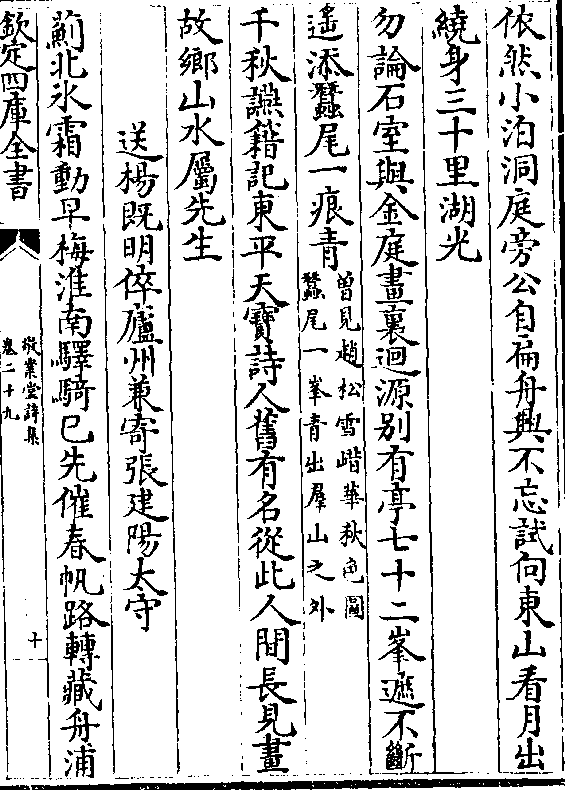 依然小泊洞庭旁公自扁舟興不忘試向東山看月出
繞身三十里湖光
勿論石室與金庭畫裏迴源别有亭七十二峯遮不斷
遥添蠶尾一痕青曾見趙松雪鵲華秋色圖
蠶尾一峯青出羣山之外
千秋讌籍記東平天寶詩人舊有名從此人間長見畫
故鄉山水屬先生
送楊既明倅廬州兼寄張建陽太守
薊北氷霜動早梅淮南驛騎已先催春帆路轉藏舟浦
欽定四庫全書
敬業堂詩集
卷二十九
十